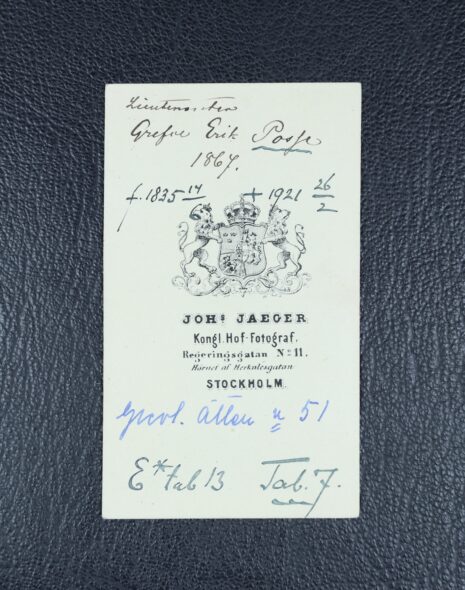 Lieutenanten
Grefve Erik Posse
1867.
f. 1835 14/6 + 1921 26/2
JOHS JAEGER
Kongl. Hof-Fotograf.
Regeringsgatan No 11.
Hörnet af Herkulesgatan
STOCKHOLM.
Grevl. Ätten n 51
E* tab 13 Tab. 7.